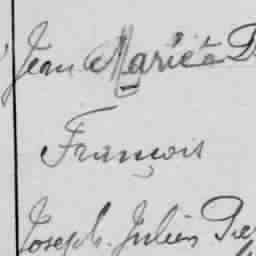 Jean Marie
François
Joseph Julien